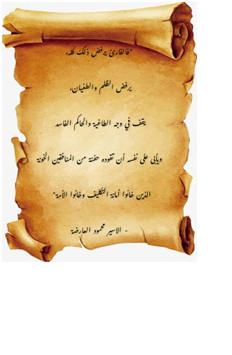 "فالقارئ يرفض ذلك كله،
يرفض الظلم والطغيان،
يقف في وجه الطاغية والحاكم الفاسد
ويأبى على نفسه أن تقوده حفنة من المنافقين الخونة
الذين خانوا أمانة التكليف وخانوا الأمة"
- الاسير محمود العارضة